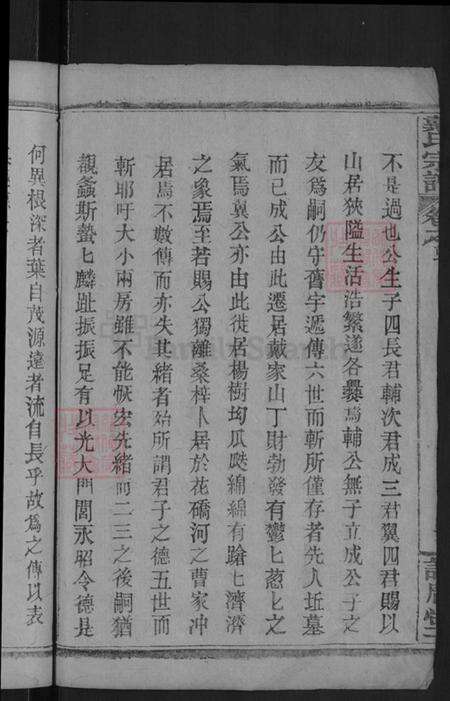 不是過也公生子四長君輔次君成三君翼四君賜以
山居狹隘生活浩繁遂各爨焉輔公無子立成公子之
友為嗣仍守舊宇遞傳六世而斬所僅存者先人坵墓
而已成公由此遷居戴家山丁財勃發有鬱匕蔥匕之
氣焉翼公亦由此徙居楊樹坳瓜瓞綿綿有蹌匕濟濟
之象焉至若賜公獨離桑梓卜居於花磽河之曹家冲
居焉不數傳而亦失其緒者殆所謂君子之德五世而
斬耶吁大小兩房雖不能恢宏先緒而二三之後嗣猶
覩螽斯蟄匕麟趾振振足有以光大門閭永昭令德是
何異根深者葉自茂源遠者流自長乎故為之傳以表
氏宗譜